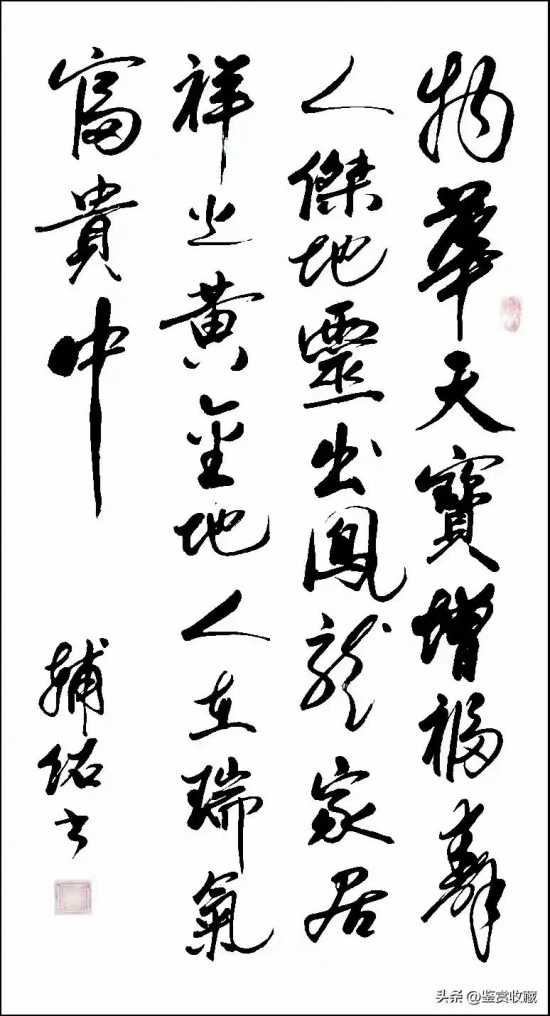 物華天寶增福壽
人傑地靈出鳳龍家居
祥光黄金地人在瑞氣
富貴中
輔佑书
头条 @鉴赏收藏